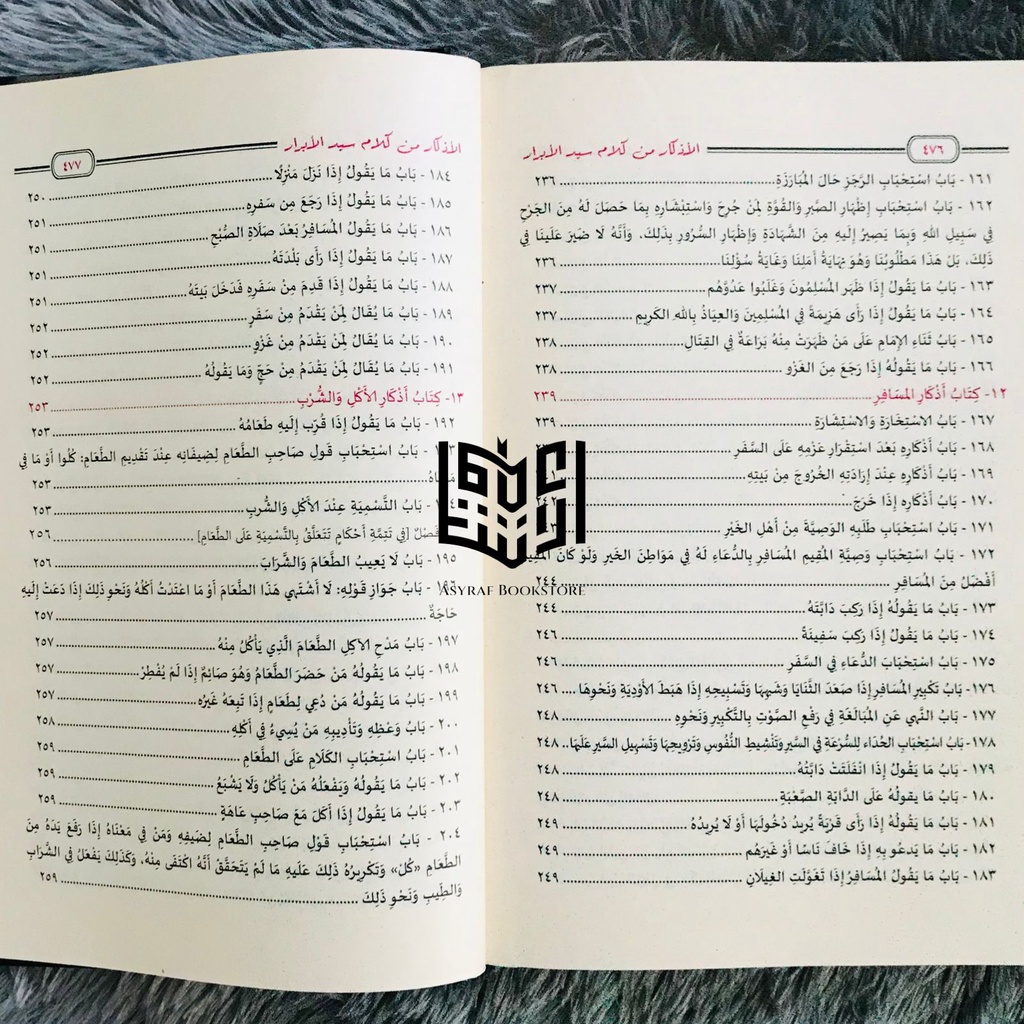 ٤٧٦
الأذكار من كلام سيد الأبرار
١٦١ - بَابُ اسْتِحْبَابِ الرَّجَزِ حَالَ المُبَارَزَةِ ٢٣٦
١٦٢ - بَابُ اسْتِحْبَابِ إِظْهَارِ الصَّبْرِ وَالقُوَّةِ لِمَنْ جُرِحَ وَاسْتِبْشَارِهِ بِمَا حَصَلَ لَهُ مِنَ الجَرْحِ
فِي سَبِيلِ اللهِ وَبِمَا يَصِيرُ إِلَيْهِ مِنَ الشَّهَادَةِ وَإِظْهَارِ السُّرُورِ بِذَلِكَ، وَأَنَّهُ لَا ضَيْرَ عَلَيْنَا فِي
ذَلِكَ، بَلْ هَذَا مَطْلُوبُنَا وَهُوَ نِهَايَةُ أَمَلِنَا وَغَايَةُ سُؤْلِنَا ٢٣٦
١٦٣ - بَابُ مَا يَقُولُ إِذَا ظَهَرَ المُسْلِمُونَ وَغَلَبُوا عَدُوَّهُم ٢٣٧
١٦٤ - بَابُ مَا يَقُولُ إِذَا رَأَى هَزِيمَةً فِي المُسْلِمِينَ وَالعِيَاذُ بِاللهِ الكَرِيمِ ٢٣٧
١٦٥ - بَابُ ثَنَاءِ الإِمَامِ عَلَى مَنْ ظَهَرَتْ مِنْهُ بَرَاعَةٌ فِي القِتَالِ ٢٣٨
١٦٦ - بَابُ مَا يَقُولُهُ إِذَا رَجَعَ مِنَ الغَزْوِ ٢٣٨
١٢- كِتَابُ أَذْكَارِ المُسَافِرِ ٢٣٩
١٦٧ - بَابُ الاسْتِخَارَةِ وَالاسْتِشَارَةِ ٢٣٩
١٦٨ - بَابُ أَذْكَارِهِ بَعْدَ اسْتِقْرَارِ عَزْمِهِ عَلَى السَّفَرِ
١٦٩ - بَابُ أَذْكَارِهِ عِنْدَ إِرَادَتِهِ الخُرُوجَ مِنْ بَيْتِهِ
١٧٠ - بَابُ أَذْكَارِهِ إِذَا خَرَجَ
١٧١ - بَابُ اسْتِحْبَابِ طَلَبِهِ الوَصِيَّةَ مِنْ أَهْلِ الخَيْرِ
١٧٢ - بَابُ اسْتِحْبَابِ وَصِيَّةِ المُقِيمِ المُسَافِرِ بِالدُّعَاءِ لَهُ فِي مَوَاطِنِ الخَيْرِ وَلَوْ كَانَ المُقِيمُ
أَفْضَلَ مِنَ المُسَافِرِ ٢٤٤
١٧٣ - بَابُ مَا يَقُولُهُ إِذَا رَكِبَ دَابَّتَهُ ٢٤٤
١٧٤ - بَابُ مَا يَقُولُ إِذَا رَكِبَ سَفِينَةً ٢٤٦
١٧٥ - بَابُ اسْتِحْبَابِ الدُّعَاءِ فِي السَّفَرِ ٢٤٦
١٧٦ - بَابُ تَكْبِيرِ المُسَافِرِ إِذَا صَعَدَ الثَّنَايَا وَشَبِهَهَا وَتَسْبِيحِهِ إِذَا هَبَطَ الأَوْدِيَةَ وَنَحْوَهَا ٢٤٦
١٧٧ - بَابُ النَّهْيِ عَنِ المُبَالَغَةِ فِي رَفْعِ الصَّوْتِ بِالتَّكْبِيرِ وَنَحْوِهِ ٢٤٨
١٧٨ - بَابُ اسْتِحْبَابِ الحُدَاءِ لِلسُّرْعَةِ فِي السَّيْرِ وَتَنْشِيطِ النُّفُوسِ وَتَرْوِيحِهَا وَتَسْهِيلِ السَّيْرِ عَلَيْهَا ٢٤٨
١٧٩ - بَابُ مَا يَقُولُ إِذَا انْفَلَتَتْ دَابَّتُهُ ٢٤٨
١٨٠ - بَابُ مَا يقولُهُ عَلَى الدَّابَّةِ الصَّعْبَةِ ٢٤٨
١٨١ - بَابُ مَا يَقُولُهُ إِذَا رَأَى قَرْيَةً يُرِيدُ دُخُولَهَا أَوْ لَا يُرِيدُهُ ٢٤٩
١٨٢ - بَابُ مَا يَدعُو بِهِ إِذَا خَافَ نَاسًا أَوْ غَيْرَهُم ٢٤٩
١٨٣ - بَابُ مَا يَقُولُ المُسَافِرُ إِذَا تَغَوَّلَتِ الغِيلَانِ ٢٤٩
الأذكار من كلام سيد الأبرار
٤٧٧
١٨٤ - بَابُ مَا يَقُولُ إِذَا نَزَلَ مَنْزِلًا ٢٥٠
١٨٥ - بَابُ مَا يَقُولُ إِذَا رَجَعَ مِن سَفَرِهِ ٢٥١
١٨٦ - بَابُ مَا يَقُولُ المُسَافِرُ بَعْدَ صَلَاةِ الصُّبْحِ ٢٥١
١٨٧ - بَابُ مَا يَقُولُ إِذَا رَأَى بَلْدَتَهُ ٢٥١
١٨٨ - بَابُ مَا يَقُولُ إِذَا قَدِمَ مِنْ سَفَرِهِ فَدَخَلَ بَيْتَهُ ٢٥١
١٨٩ - بَابُ مَا يُقَالُ لِمَنْ يَقْدَمُ مِنْ سَفَرٍ ٢٥٢
١٩٠ - بَابُ مَا يُقَالُ لِمَنْ يَقْدَمُ مِنْ غَزْوٍ ٢٥٢
١٩١ - بَابُ مَا يُقَالُ لِمَنْ يَقْدَمُ مِنْ حَجٍّ وَمَا يَقُولُهُ ٢٥٢
١٣- كِتَابُ أَذْكَارِ الأَكْلِ وَالشُّرْبِ ٢٥٣
١٩٢ - بَابُ مَا يَقُولُ إِذَا قُرِّبَ إِلَيْهِ طَعَامُهُ ٢٥٣
بَابُ اسْتِحْبَابِ قَولِ صَاحِبِ الطَّعَامِ لِضِيفَانِهِ عِنْدَ تَقْدِيمِ الطَّعَامِ: كُلُوا أَوْ مَا فِي
٢٥٣
بَابُ التَّسْمِيَةِ عِنْدَ الأَكْلِ وَالشُّربِ ٢٥٣
[فِي تَتِمَّةِ أَحْكَامٍ تَتَعَلَّقُ بِالتَّسْمِيَةِ عَلَى الطَّعَامِ] ٢٥٦
١٩٥ - بَابُ لَا يَعِيبُ الطَّعَامَ وَالشَّرَابَ ٢٥٦
١٩٦ - بَابُ جَوَازِ قَوْلِهِ: لَا أَشْتَهِي هَذَا الطَّعَامَ أَوْ مَا اعْتَدْتُ أَكْلَهُ وَنَحْوِ ذَلِكَ إِذَا دَعَتْ إِلَيْهِ
حَاجَةٌ ٢٥٧
١٩٧ - بَابُ مَدْحِ الآكِلِ الطَّعَامَ الَّذِي يَأْكُلُ مِنْهُ ٢٥٧
١٩٨ - بَابُ مَا يَقُولُهُ مَنْ حَضَرَ الطَّعَامُ وَهُوَ صَائِمٌ إِذَا لَمْ يُفْطِرْ ٢٥٧
١٩٩ - بَابُ مَا يَقُولُهُ مَنْ دُعِي لِطَعَامٍ إِذَا تَبِعَهُ غَيْرُه ٢٥٧
٢٠٠ - بَابُ وَعْظِهِ وَتَأْدِيبِهِ مَنْ يُسِيءُ فِي أَكْلِهِ ٢٥٨
٢٠١ - بَابُ اسْتِحْبَابِ الكَلَامِ عَلَى الطَّعَامِ ٢٥٩
٢٠٢ - بَابُ مَا يَقُولُهُ وَيَفْعَلُهُ مَنْ يَأْكُلُ وَلَا يَشْبَعُ ٢٥٩
٢٠٣ - بَابُ مَا يَقُولُ إِذَا أَكَلَ مَعَ صَاحِبِ عَاهَةٍ ٢٥٩
٢٠٤ - بَابُ اسْتِحْبَابِ قَوْلِ صَاحِبِ الطَّعَامِ لِضَيفِهِ وَمَنْ فِي مَعْنَاهُ إِذَا رَفَعَ يَدَهُ مِنَ
الطَّعَامِ «كُلْ» وَتَكْرِيرُهُ ذَلِكَ عَلَيهِ مَا لَمْ يَتَحَقَّقْ أَنَّهُ اكْتَفَى مِنْهُ، وَكَذَلِكَ يَفْعَلُ فِي الشَّرَابِ
وَالطِّيبِ وَنَحْوِ ذَلِكَ ٢٥٩
ASYRAF BOOKSTORE